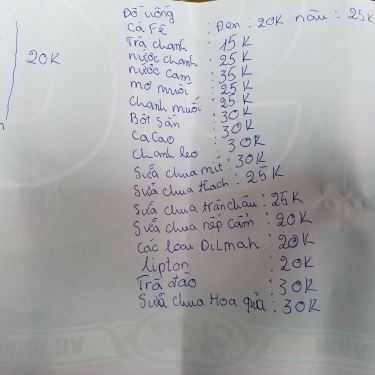 Đồ uống
Cà Fê : Đen : 20K nâu : 25K
Trà chanh : 15K
nước chanh : 25K
nước cam : 35K
mơ muối : 25K
chanh muối : 25K
Bột sắn : 30K
Ca Cao : 30K
chanh leo : 30K
Sữa chua mít : 30K
Sữa chua thạch : 25K
Sữa chua trân châu : 25K
Sữa chua nếp cẩm : 20K
Các loại Dilmah : 20K
lipton : 20K
Trà đào : 30K
Sữa chua Hoa quả : 30K
20K